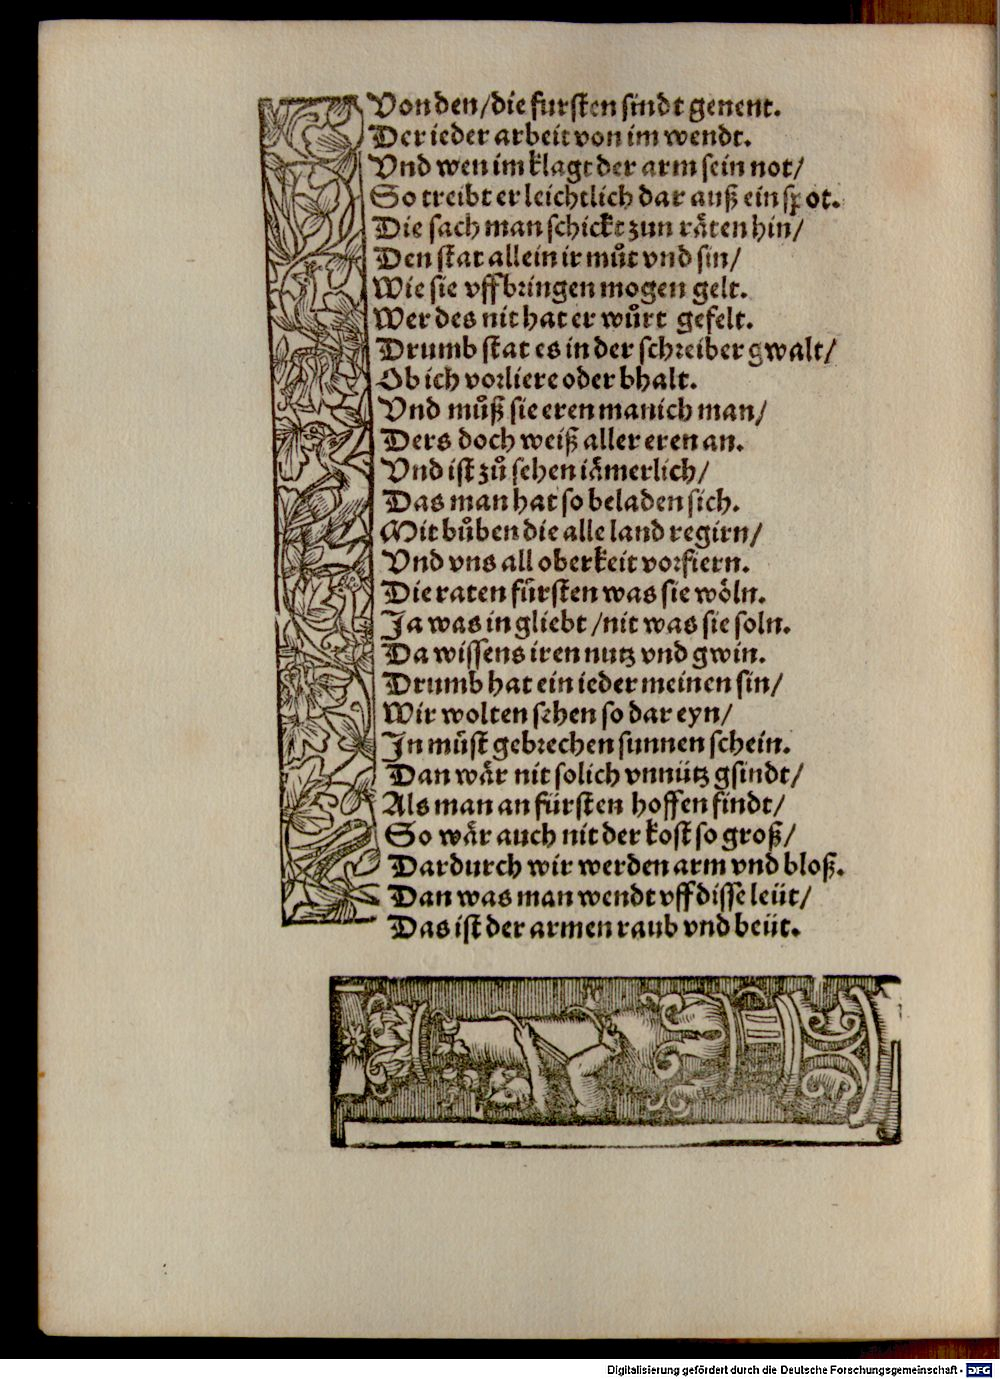 Von den/die fursten sindt genent.
Der ieder arbeit von im wendt.
Vnd wen im klagt der arm sein not/
So treibt er leichtlich dar auß ein spot.
Die sach man schickt zun räten hin/
Den stat allein ir muͦt vnd sin/
Wie sie vffbringen mogen gelt.
Wer des nit hat er wuͦrt gefelt.
Drumb stat es in der schreiber gwalt/
Ob ich vorliere oder bhalt.
Vnd muͦß sie eren manich man/
Ders doch weiß aller eren an.
Vnd ist zuͦ sehen iämerlich/
Das man hat so beladen sich.
Mit buͦben die alle land regirn/
Vnd vns all oberkeit vorfiern.
Die raten fürsten was sie wöln.
Ja was in gliebt/nit was sie soln.
Da wissens iren nutz vnd gwin.
Drumb hat ein ieder meinen sin/
Wir wolten sehen so dar eyn/
In müst gebrechen sunnen schein.
Dan wär nit solich vnnütz gsindt/
Als man an fürsten hoffen findt/
So wär auch nit der kost so groß/
Dardurch wir werden arm vnd bloß.
Dan was man wendt vff disse leüt/
Das ist der armen raub vnd beüt.
Digitalisierung gefördert durch die Deutsche Forschungsgemeinschaft - DFG